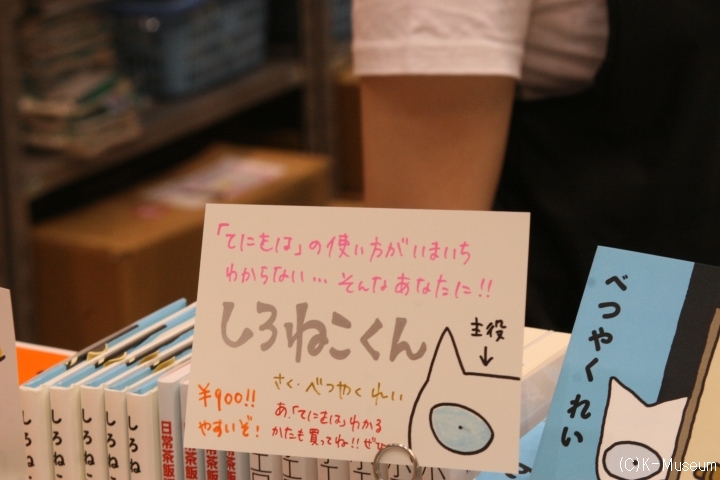 「てにをは」の使い方がいまいち
わからない… そんなあなたに!!
しろねこくん
主役
さく・べつやく れい
¥900!!
やすいぞ!
あ、「てにをは」わかる
かたも買ってね!!ぜひ
べつやくれい
しろね
しろね
しろね
しろね
日常茶飯
日常茶飯
(C)K-Museum